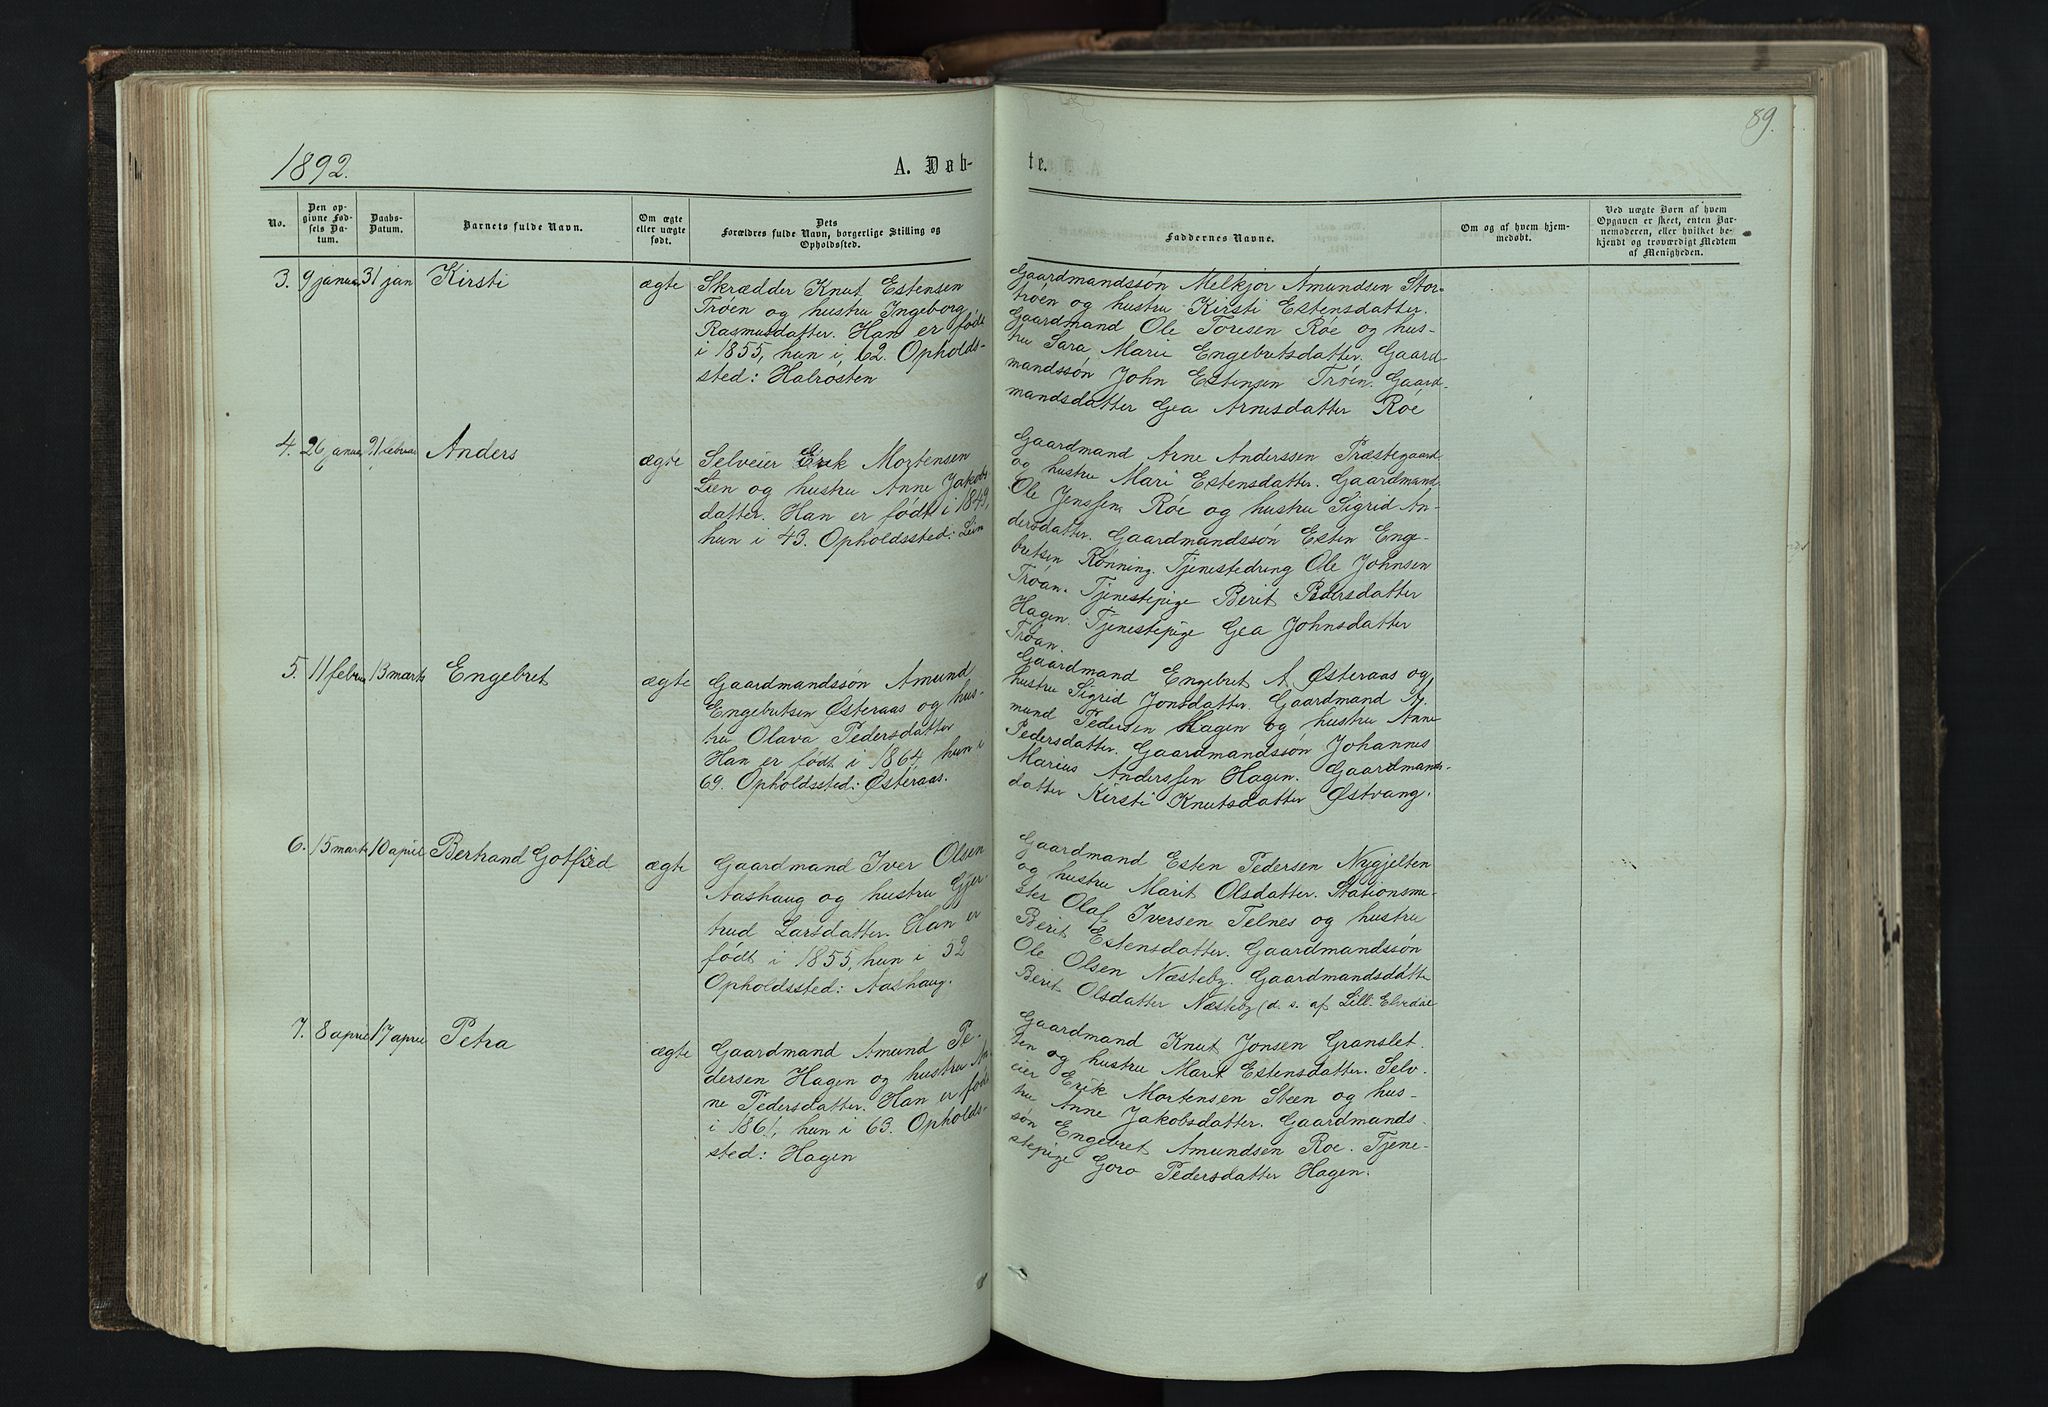 1892.
A. Døb-
te.
89.
No.
Den op-
givne Fød-
sels Da-
tum.
Daabs-
Datum.
Barnets fulde Navn.
Om ægte
eller uægte
født.
Dets
Forældres fulde Navn, borgerlige Stilling og
Opholdssted.
Faddernes Navne.
Om og af hvem hjem-
medøbt.
Ved uægte Børn af hvem
Opgaven er skeet, enten Bar-
nemoderen, eller hvilket be-
kjendt og troværdigt Medlem
af Menigheden.
3. 9 januar 31 jan Kirsti ægte
Skrædder Knut Estensen
Trøen og hustru Ingeborg
Rasmusdatter. Han er født
i 1855, hun i 62. Opholds-
sted: Halrøsten
Gaardmandssøn Melkjor Amundsen Stor-
trøen og hustru Kirsti Estensdatter.
Gaardmand Ole Toresen Røe og hus-
tru Sara Marie Engebretsdatter. Gaard-
mandssøn John Estensen Trøen. Gaard-
mandsdatter Gea Arnesdatter Røe
4. 26 januar 21 februar Anders ægte
Selveier Erik Mortensen
Lien og hustru Anne Jakobs
datter. Han er født i 1849,
hun i 43. Opholdssted: Lien
Gaardmand Arne Anderssen Præstegaard
og hustru Mari Estensdatter. Gaardmand
Ole Jenssen Røe og hustru Sigrid An-
dersdatter. Gaardmandssøn Esten Enge-
bretsen Rønning. Tjenestedreng Ole Johnsen
Trøan. Tjenestepige Berit Pedersdatter
Hagen. Tjenestepige Gea Johnsdatter
Trøan.
5. 11 februar 13 marts Engebret ægte
Gaardmandssøn Amund
Engebretsen Østeraas og hus-
tru Olava Pedersdatter
Han er født i 1864, hun i
69. Opholdssted: Østeraas.
Gaardmand Engebret A. Østeraas og
hustru Sigrid Jonsdatter. Gaardmand A-
mund Pedersen Hagen og hustru Anne
Pedersdatter. Gaardmandssøn Johannes
Marius Anderssen Hagen. Gaardmands-
datter Kirsti Knutsdatter Østvang.
6. 15 marts 10 april Bertrand Gotfred ægte
Gaardmand Iver Olsen
Aashaug og hustru Gjer-
trud Larsdatter. Han er
født i 1855, hun i 52
Opholdssted: Aashaug.
Gaardmand Esten Pedersen Nygjelten
og hustru Marit Olsdatter. Stationsme-
ster Olaf Iversen Telnes og hustru
Berit Estensdatter. Gaardmandssøn
Ole Olsen Næsteby. Gaardmandsdatte
Berit Olsdatter Næsteby (d. s. af Lill. Elvedal
7. 8 april 17 april Petra ægte
Gaardmand Amund Pe-
dersen Hagen og hustru An-
ne Pedersdatter. Han er født
i 1861, hun i 63. Opholds-
sted: Hagen
Gaardmand Knut Jonsen Granslet-
ten og hustru Marit Estensdatter. Selv-
eier Erik Mortensen Steen og hus-
tru Anne Jakobsdatter. Gaardmands-
søn Engebret Amundsen Roe. Tjene-
stepige Goro Pedersdatter Hagen.